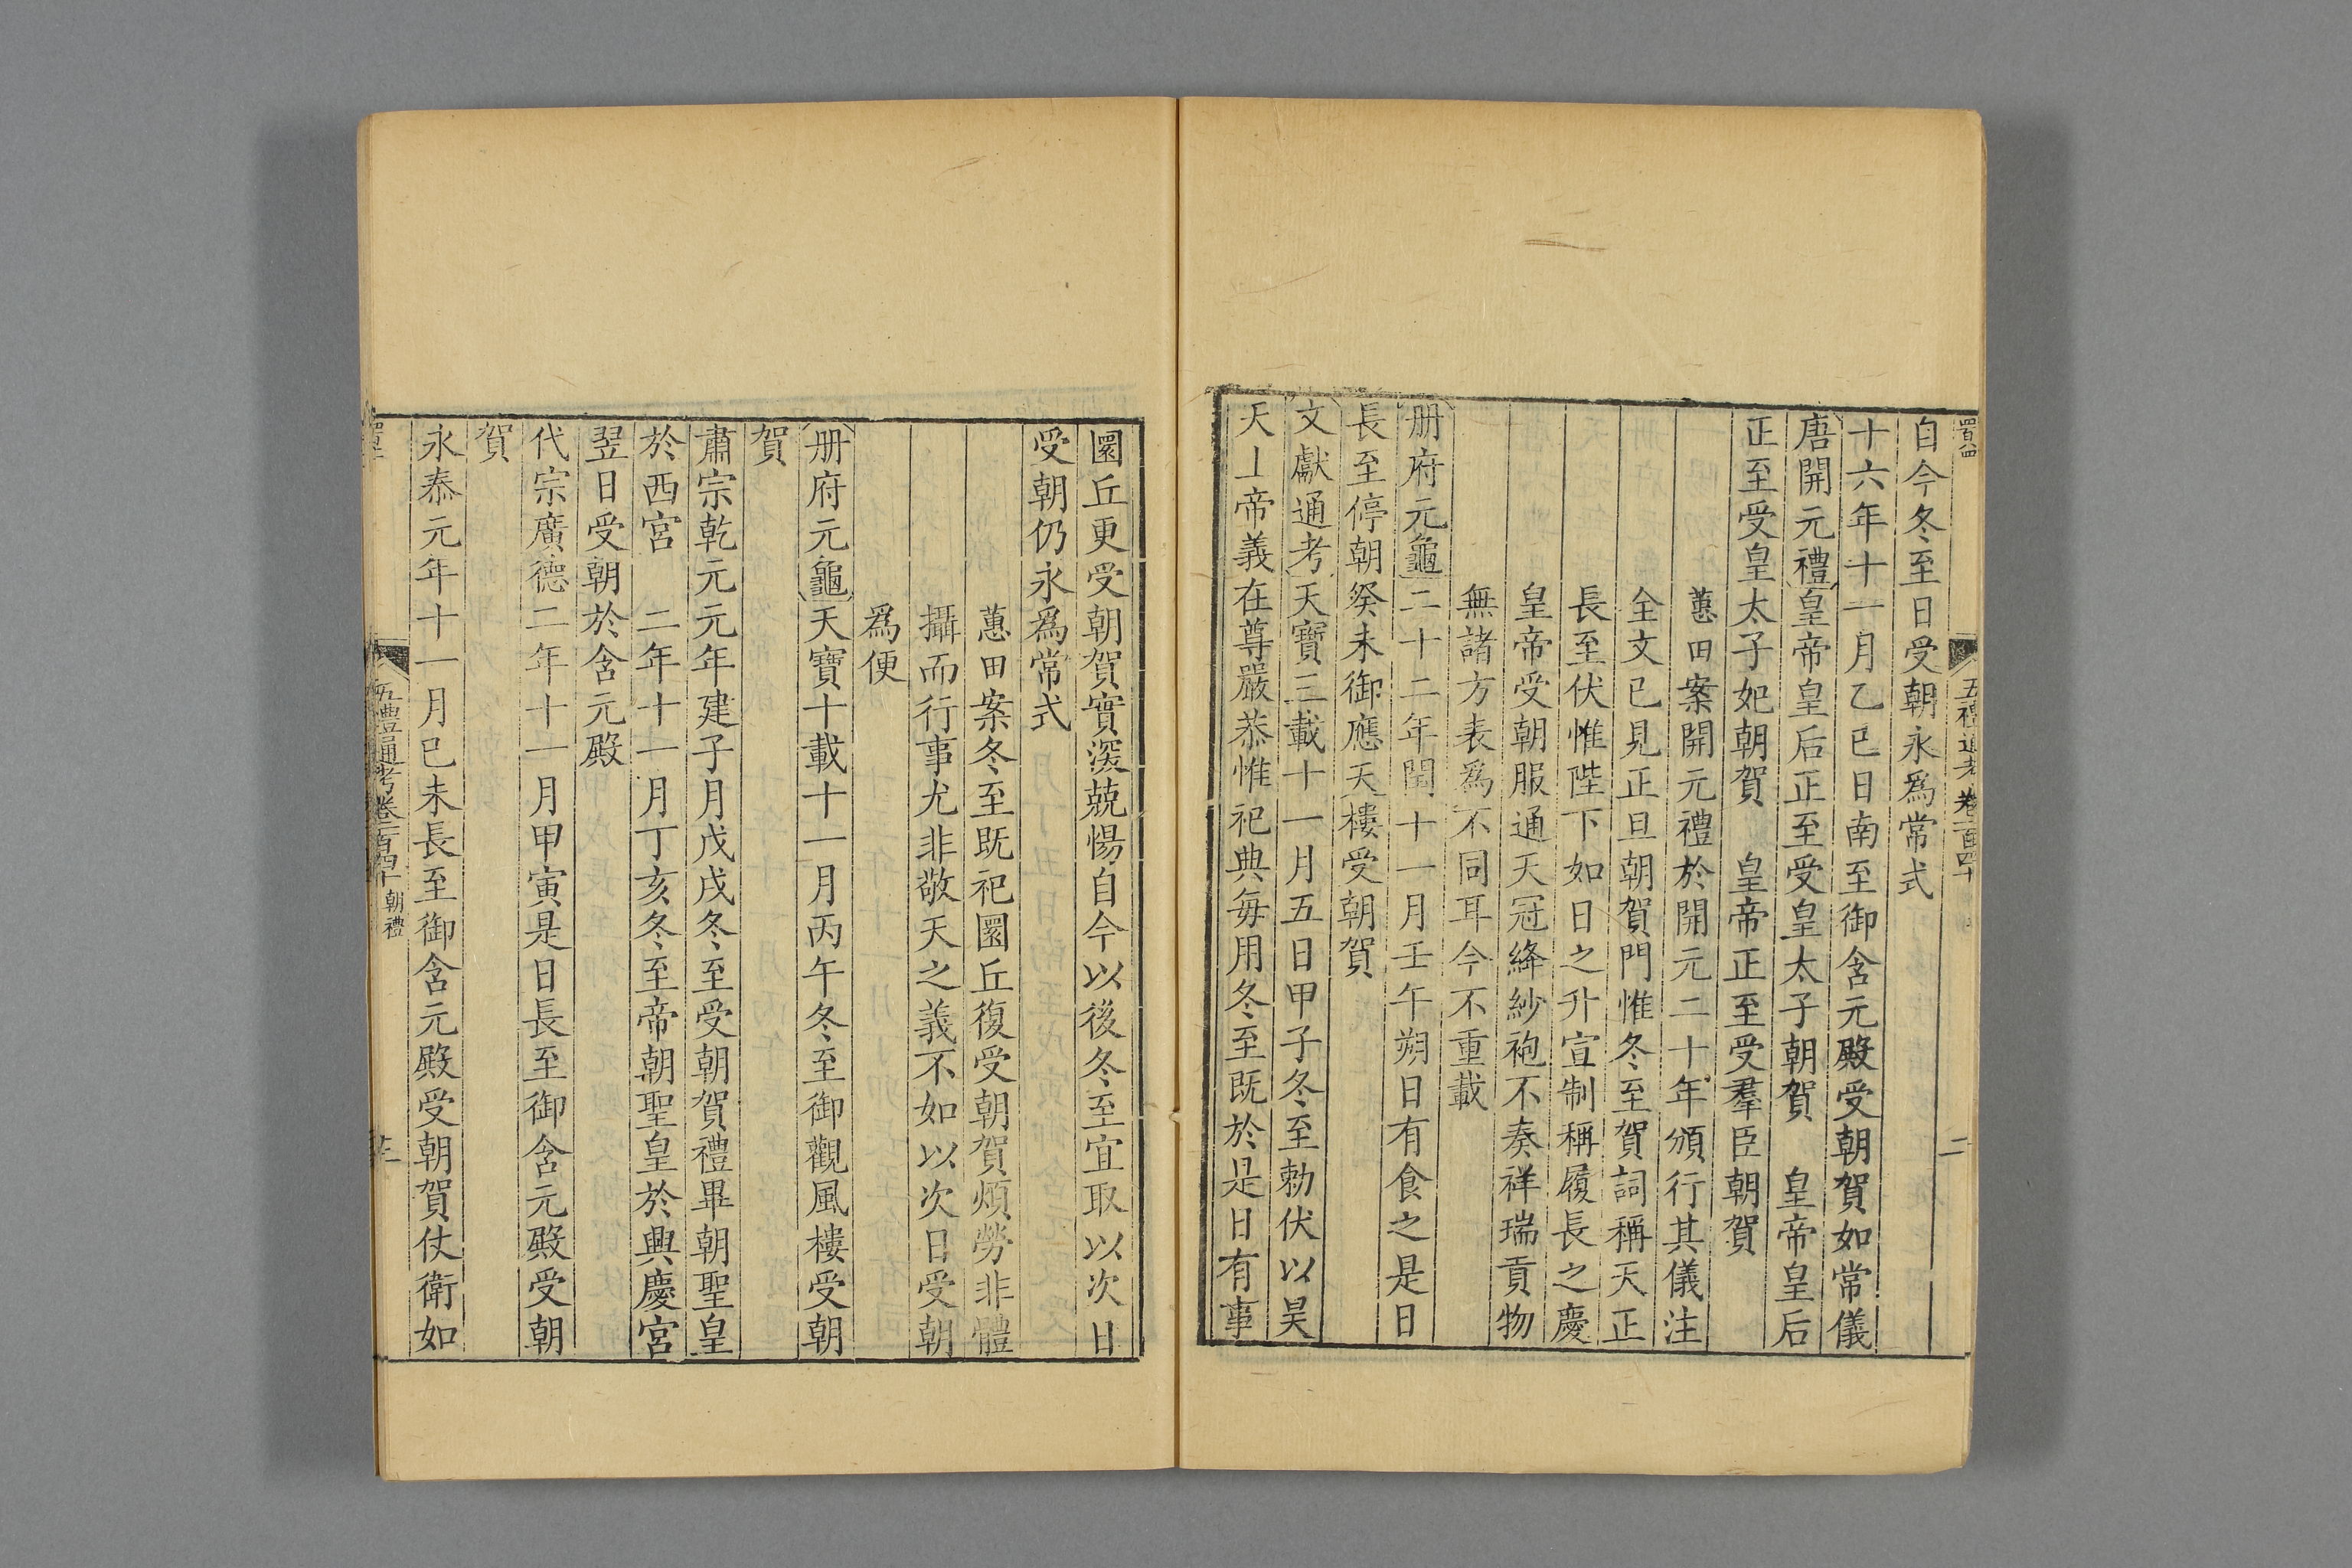 五禮通考卷一百四十
二
自今冬至日受朝永爲常式
十六年十一月乙巳日南至御含元殿受朝賀如常儀
唐開元禮皇帝皇后正至受皇太子朝賀　皇帝皇后
正至受皇太子妃朝賀　皇帝正至受羣臣朝賀
蕙田案開元禮於開元二十年頒行其儀注
全文已見正旦朝賀門惟冬至賀詞稱天正
長至伏惟陛下如日之升宣制稱履長之慶
皇帝受朝服通天冠絳紗袍不奏祥瑞貢物
無諸方表爲不同耳今不重載
册府元龜二十二年閏十一月壬午朔日有食之是日
長至停朝癸未御應天樓受朝賀
文獻通考天寶三載十一月五日甲子冬至勅伏以昊
天上帝義在尊嚴恭惟祀典每用冬至既於是日有事
圜丘更受朝賀實深兢惕自今以後冬至宜取以次日
受朝仍永爲常式
蕙田案冬至既祀圜丘復受朝賀煩勞非體
攝而行事尤非敬天之義不如以次日受朝
爲便
册府元龜天寶十載十一月丙午冬至御觀風樓受朝
賀
肅宗乾元元年建子月戊戌冬至受朝賀禮畢朝聖皇
於西宮　二年十一月丁亥冬至帝朝聖皇於興慶宮
翌日受朝於含元殿
代宗廣德二年十一月甲寅是日長至御含元殿受朝
賀
永泰元年十一月巳未長至御含元殿受朝賀仗衛如
五禮通考卷一百四十　朝禮